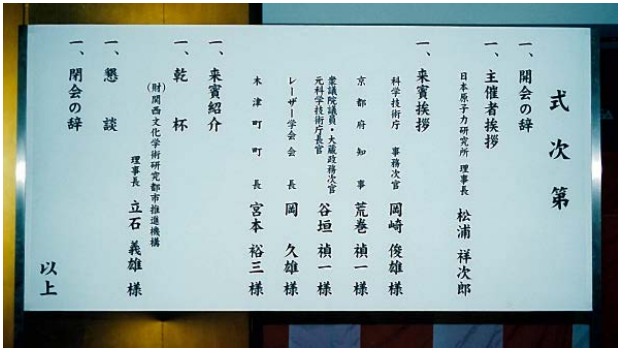 式次第
一、開会の辞
一、主催者挨拶
日本原子力研究所 理事長 松浦 祥次郎
一、来賓挨拶
科学技術庁 事務次官 岡崎 俊雄 様
京都府知事 荒巻 禎一 様
衆議院議員・大蔵政務次官
元科学技術庁長官 谷垣 禎一 様
レーザー学会会長 岡 久雄 様
木津町町長 宮本 裕三 様
一、来賓紹介
一、乾杯
(財)関西文化学術研究都市推進機構
理事長 立石 義雄 様
一、懇談
一、閉会の辞
以上